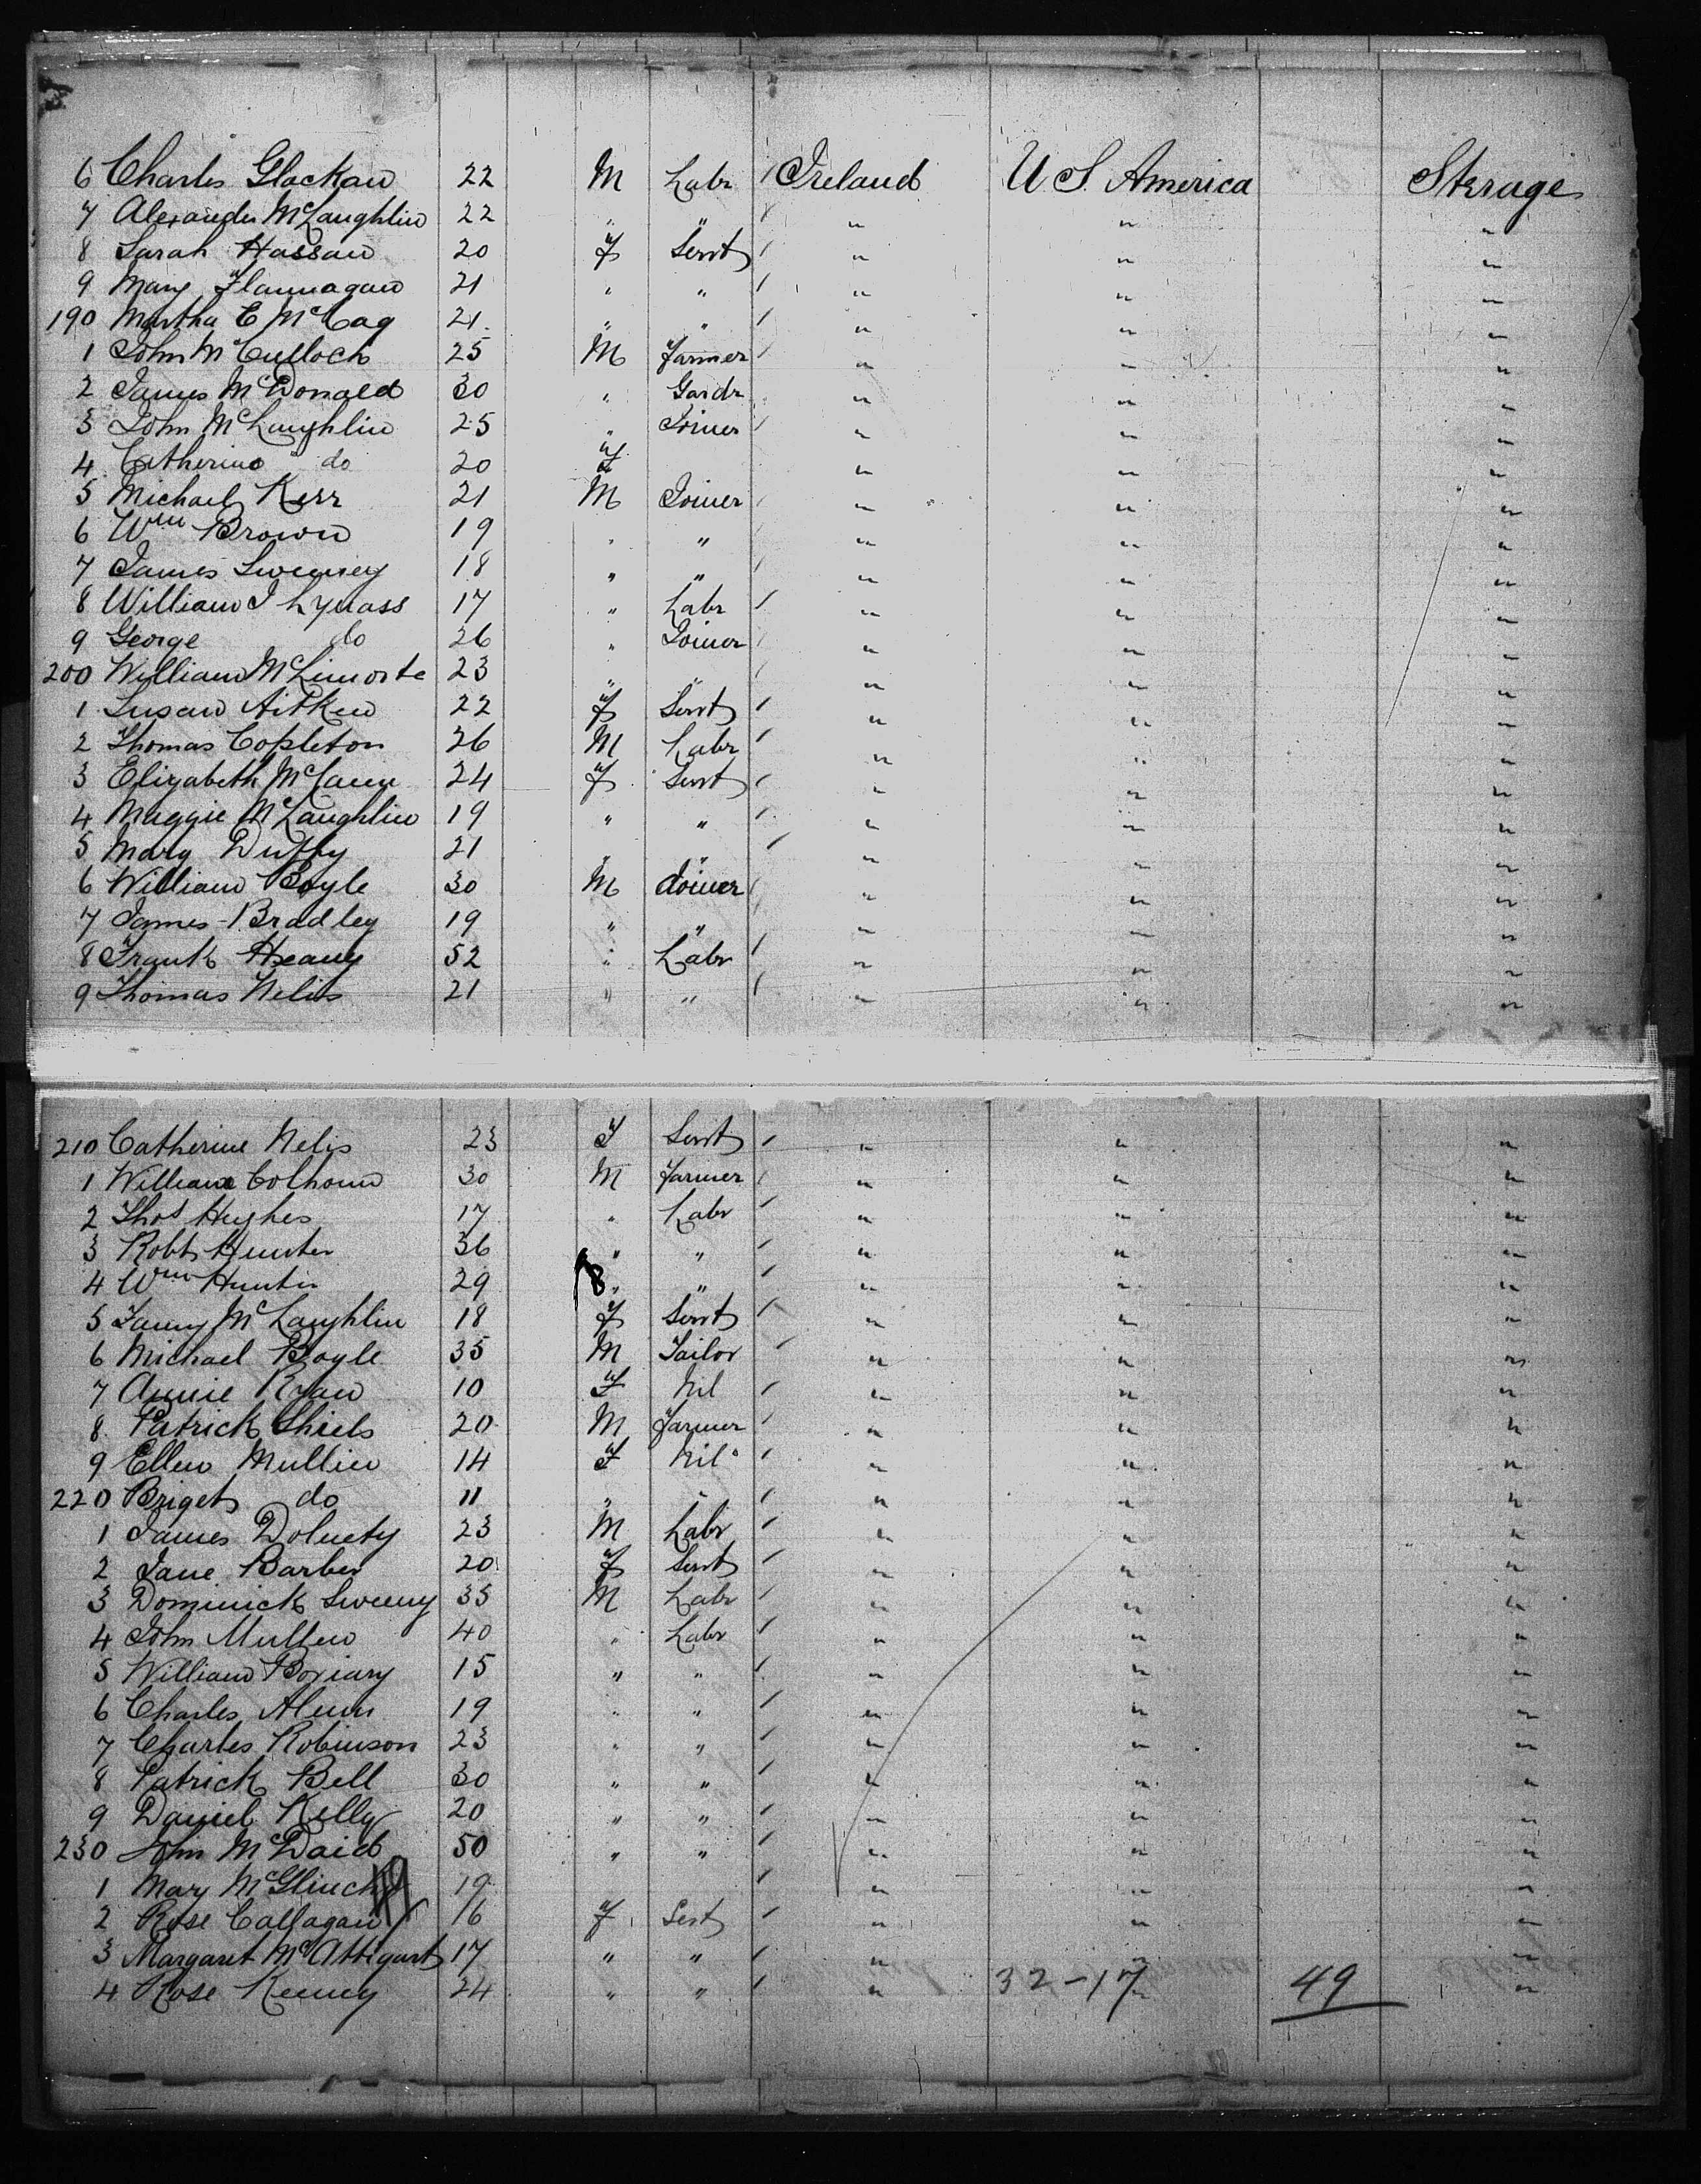 6 Charles Glackan 22 M Labr Ireland U S. America Sterage
7 Alexander McLaughlin 22 " " " " "
8 Sarah Hassan 20 F Servt " " "
9 Mary Flannagan 21 " " " " "
190 Martha E McCag 21 " " " " "
1 John McCulloch 25 M Farmer " " "
2 James McDonald 30 " Gardr " " "
3 John McLaughlin 25 " Joiner " " "
4 Catherine do 20 F " " "
5 Michael Kerr 21 M Joiner " " "
6 Wm Brown 19 " " " " "
7 James Sweeney 18 " " " " "
8 William J Lynass 17 " Labr " " "
9 George do 26 " Joiner " " "
200 William 23 " " " " "
1 Susan Aitken 22 F Servt " " "
2 Thomas Copleton 26 M Labr " " "
3 Elizabeth McCann 24 F Servt " " "
4 Maggie McLaughlin 19 " " " " "
5 Mary Duffy 21 " " " " "
6 William Boyle 30 M Joiner " " "
7 James Bradley 19 " " " " "
8 Frank Heany 52 " Labr " " "
9 Thomas Nelis 21 " " " " "
210 Catherine Nelis 23 F Servt " " "
1 William Colhoun 30 M Farmer " " "
2 Thos Hughes 17 " Labr " " "
3 Robt Hunter 36 " " " " "
4 Wm Hunter 29 " " " " "
5 Fanny McLaughlin 18 F Servt " " "
6 Michael Boyle 35 M Tailor " " "
7 Annie Ryan 10 F Nil " " "
8 Patrick Shiels 20 M Farmer " " "
9 Ellen Mullin 14 F Nil " " "
220 Briget do 11 " " " " "
1 James 23 M Labr " " "
2 Jane Barber 20 F Servt " " "
3 Dominick Sweeny 35 M Labr " " "
4 John Mullen 40 " Labr " " "
5 William 15 " " " " "
6 Charles 19 " " " " "
7 Charles Robinson 23 " " " " "
8 Patrick Bell 30 " " " " "
9 Daniel Kelly 20 " " " " "
230 John McDaid 50 " " " " "
1 Mary McGlinchy 19 " " "
2 Rose Callagan 16 F Sert " " "
3 Margaret McAttigart 17 " " " " "
4 Rose Keeney 24 " " " 32-17 " 49 "